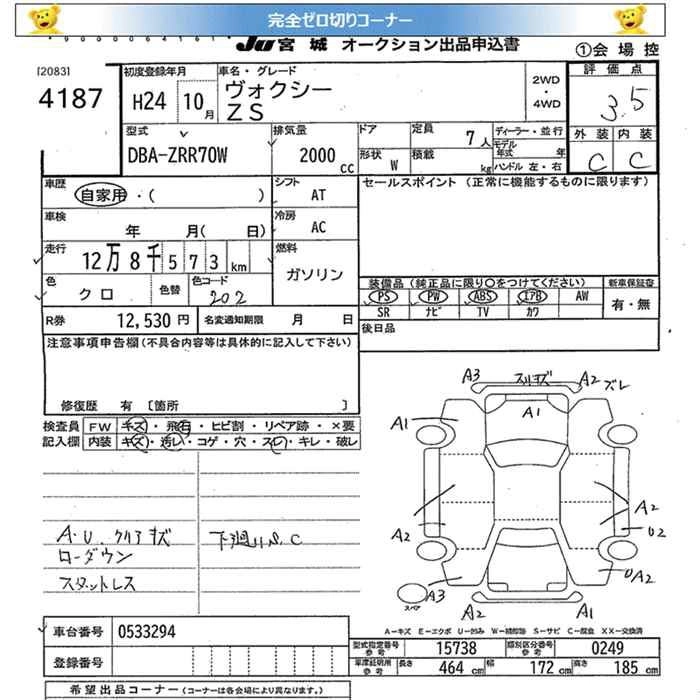 完全ゼロ切りコーナー
JU宮城 オークション出品申込書
①会場控
[2083]
4187
初度登録年月
H24 10月
車名・グレード
ヴォクシー
ZS
2WD
・
4WD
評価点
3.5
外装 内装
C C
型式
DBA-ZRR70W
排気量
2000 CC
ドア
形状 W
定員 7人
積載 kg
ディーラー・並行
モデル年式 年
ハンドル 左・右
車歴
自家用・( )
シフト
AT
セールスポイント (正常に機能するものに限ります)
車検
年 月( 日)
冷房
AC
走行
12万8千573km
燃料
ガソリン
色
クロ
色替
色コード
202
装備品(純正品に限り○をつけてください)
新車保証書
PS PW ABS エアB AW
有・無
SR ナビ TV カワ
R券 12,530円
名変通知期限 月 日
後日品
注意事項申告欄(不具合内容等は具体的に記入して下さい)
修復歴 有 〔箇所 〕
検査員記入欄
FW キズ・飛石・ヒビ割・リペア跡・×要
内装 キズ・汚レ・コゲ・穴・スレ・キレ・破レ
A.U.クリアキズ
ローダウン
スタットレス
下廻りS.C
A3 スリキズ A2 ズレ
A1
A1
A2
A2
U2
UA2
A3
スペア
A2
A1
A=キズ E=エクボ U=凹み W=補修跡 S=サビ C=腐食 XX=交換済
車台番号 0533294
登録番号
型式指定番号参考 15738
類別区分番号参考 0249
車庫証明用参考 長さ 464cm 幅 172cm 高さ 185cm
希望出品コーナー(コーナーは各会場により異なります。)